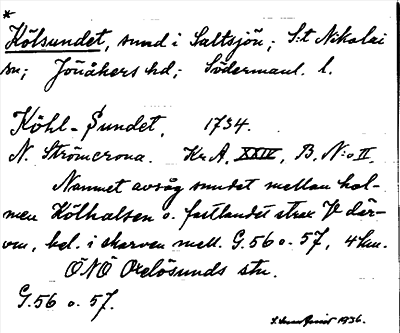 *
Kölsundet, sund i Saltsjön; S:t Nikolai
sn; Jönåkers hd; Södermanl. l.
Köhl-Sundet, 1734.
N. Strömcrona. Kr.A. XXIV, B, N:o II.
Namnet avsåg sundet mellan hol-
men Kölhalsen o. fastlandet strax V där-
om, bel. i skarven mell. G.56 o. 57, 4 km.
ÖNÖ Oxelösunds stn.
G.56 o. 57.
1936.